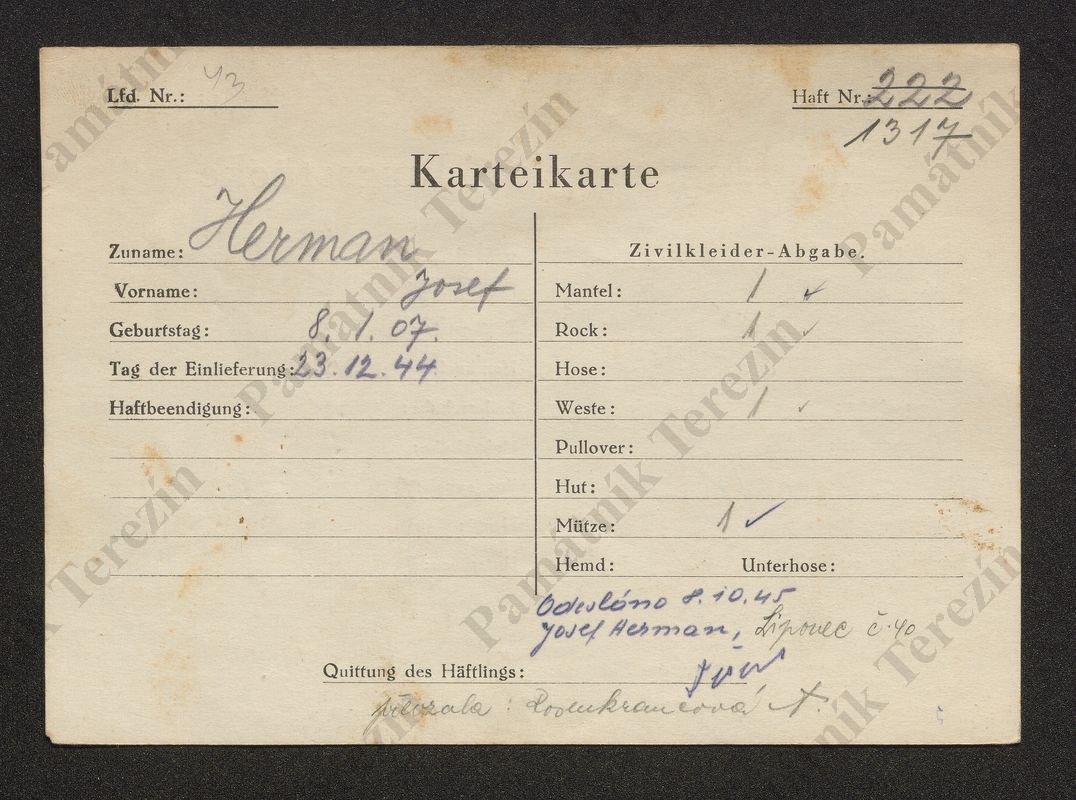 Lfd. Nr.: 43
Haft Nr.: 222
1317
Karteikarte
Zuname: Herman
Vorname: Josef
Geburtstag: 8. 1. 07.
Tag der Einlieferung: 23. 12. 44
Haftbeendigung:
Zivilkleider-Abgabe.
Mantel: 1 ✓
Rock: 1 ✓
Hose:
Weste: 1 ✓
Pullover:
Hut:
Mütze: 1 ✓
Hemd: Unterhose:
Odesláno 8. 10. 45
Josef Herman, Lipovec č. 40
Quittung des Häftlings:
Rosenkrancová A.
Památník Terezín